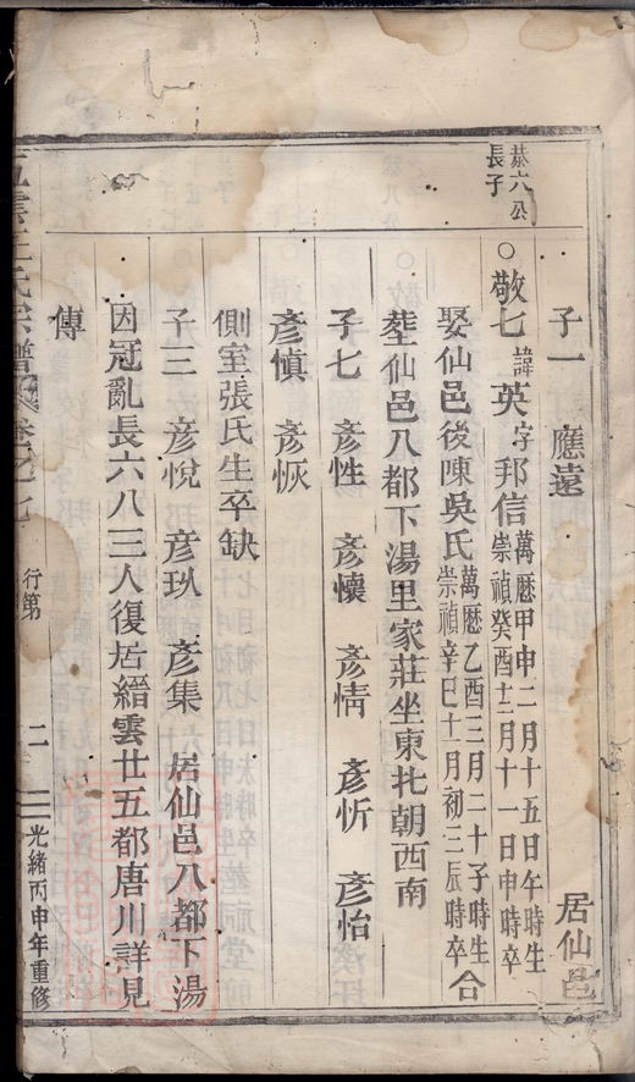 子一　應遠　居仙邑
恭六公
長子
○敬七諱英字邦信萬曆甲申二月十五日午時生
崇禎癸酉十二月十一日申時卒
娶仙邑後陳吳氏萬曆乙酉三月二十子時生
崇禎辛巳十一月初三辰時卒合
塟仙邑八都下湯里家莊坐東北朝西南
子七　彥性　彥懷　彥情　彥忻　彥怡
彥慎　彥恢
側室張氏生卒缺
子三　彥悅　彥㺵　彥集　居仙邑八都下湯
因冦亂長六八三人復居縉雲廿五都唐川詳見
傳
五雲王氏宗譜　卷之七　行第　二　光緒丙申年重修